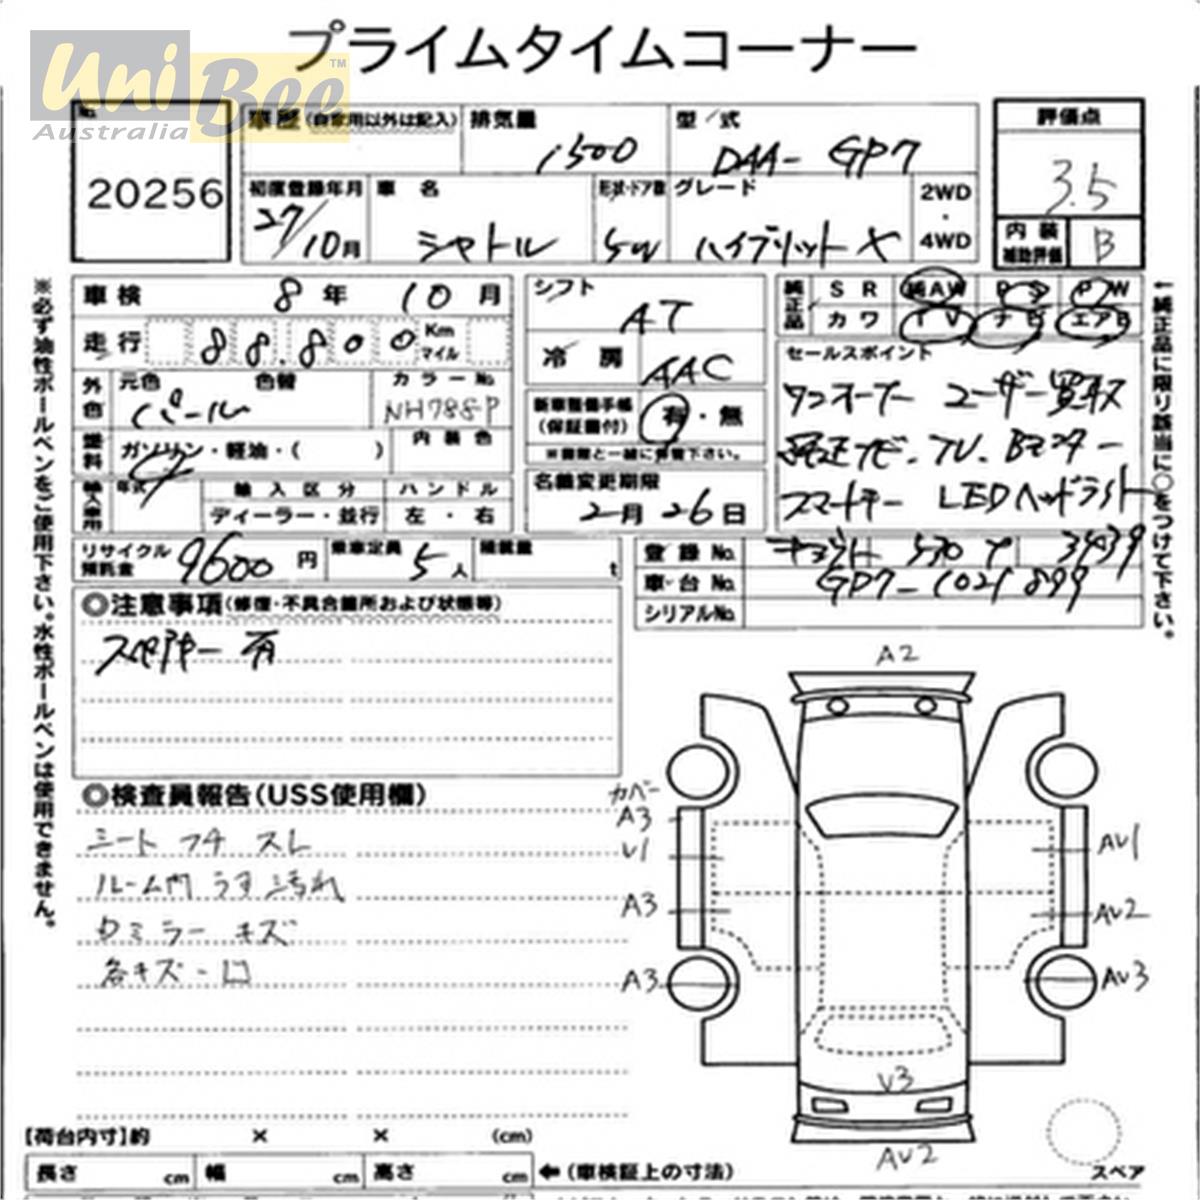 プライムタイムコーナー
UniBee™
Australia
20256
車歴 (自家用以外は記入)
排気量 1500
型/式 DAA- GP7
評価点 3.5
初度登録年月 27/10月
車名 シャトル
形状・ドア数 5W
グレード ハイブリット X
2WD・4WD
内装補助評価 B
車検 8年 10月
走行 88.800 Km マイル
外色 元色 パール 色替
カラーNo. NH788P
燃料 ガソリン・軽油・( )
内装色
輸入車用 年式
輸入区分 ディーラー・並行
ハンドル 左・右
シフト AT
冷房 AAC
新車整備手帳 (保証書付) 有・無
※書類と一緒に保管下さい。
名義変更期限 2月 26日
純正品 SR 純AW PS PW
カワ TV ナビ エアB
セールスポイント
ワンオーナー ユーザー買取
純正ナビ、TV、Bモニター
スマートキー LEDヘッドライト
リサイクル預託金 9600円
乗車定員 5人
積載量 t
登録No. 530 3439
車台No. GP7-1021899
シリアルNo.
◎注意事項(修復・不具合箇所および状態等)
スペアキー 有
◎検査員報告(USS使用欄)
シート フチ スレ
ルーム内 うす汚れ
ミラー キズ
各キズ・凹
※必ず油性ボールペンをご使用下さい。水性ボールペンは使用できません。
↑純正品に限り該当に○をつけて下さい。
A2
カバー
A3
V1
A3
A3
AV1
AV2
AV3
V3
AV2
スペア
【荷台内寸】約 × × (cm)
長さ cm 幅 cm 高さ cm
←(車検証上の寸法)